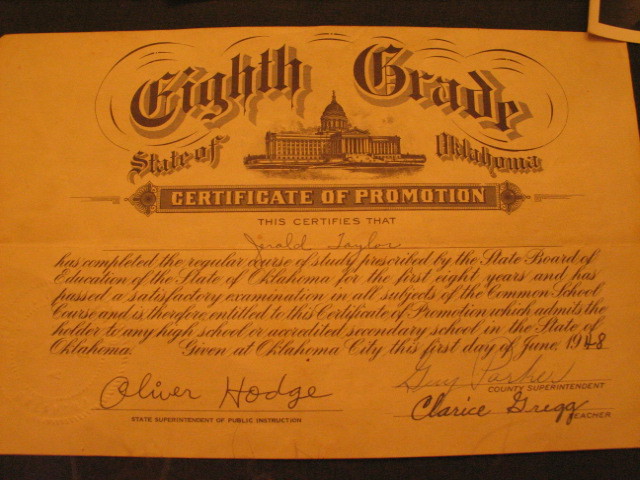 Eighth Grade
State of Oklahoma
CERTIFICATE OF PROMOTION
THIS CERTIFIES THAT
Jerald Taylor
has completed the regular course of study prescribed by the State Board of
Education of the State of Oklahoma for the first eight years and has
passed a satisfactory examination in all subjects of the Common School
Course and is therefore entitled to this Certificate of Promotion which admits the
holder to any high school or accredited secondary school in the State of
Oklahoma. Given at Oklahoma City, this first day of June, 1948
Oliver Hodge
STATE SUPERINTENDENT OF PUBLIC INSTRUCTION
Guy Parker
COUNTY SUPERINTENDENT
Clarice Gregg
TEACHER